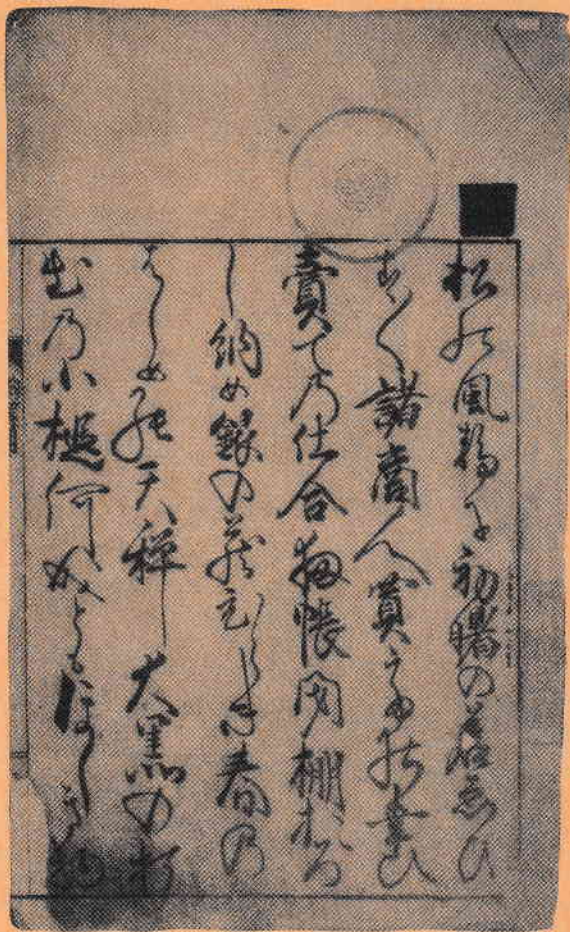 松の風静に初曙の若ゑひ
す〱諸商人買ての幸ひ
賣ての仕合扨帳閉棚おろ
し納め銀の蔵ひらき春の
はしめの天秤大黒の打
出の小槌何なりともほしき物